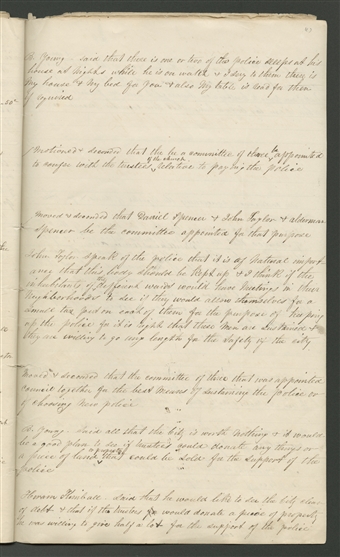 B. Young said that there is one or two of the police sleeps at his
house at nights while he is on watch & I say to them there is
my house & my bed for you & also my table is good for them
if required
Motioned & seconded that the be a committee of three to be appointed
to confer with the trustees of the church relative to paying the police
Moved & seconded that Daniel Spencer & John Taylor & alderman
Spencer be the committee appointed for that purpose
John Taylor speak of the police that it is of natural import
ance that this body should be kept up & I think if the
inhabitants of the different wards would have meetings in there
Neighborhoods to see if they would assess themselves for a
small tax on each of them for the purpose of keeping
up the police for it is right that these men are sustained &
they are willing to go any lengths for the safety of the city
Moved & seconded that the committee of three that was appointed
consult together for the best means of sustaining the police or
of choosing new police
B. Young said all that the city is worth nothing & it would
be a good plan to see if trustees could donate any things or
a piece of land that could be sold for the support of the
police
Hiram Kimball said that he would like to see the city clear
of debt & that if the trustees would donate a piece of property
he was willing to give half a lot for the support of the police